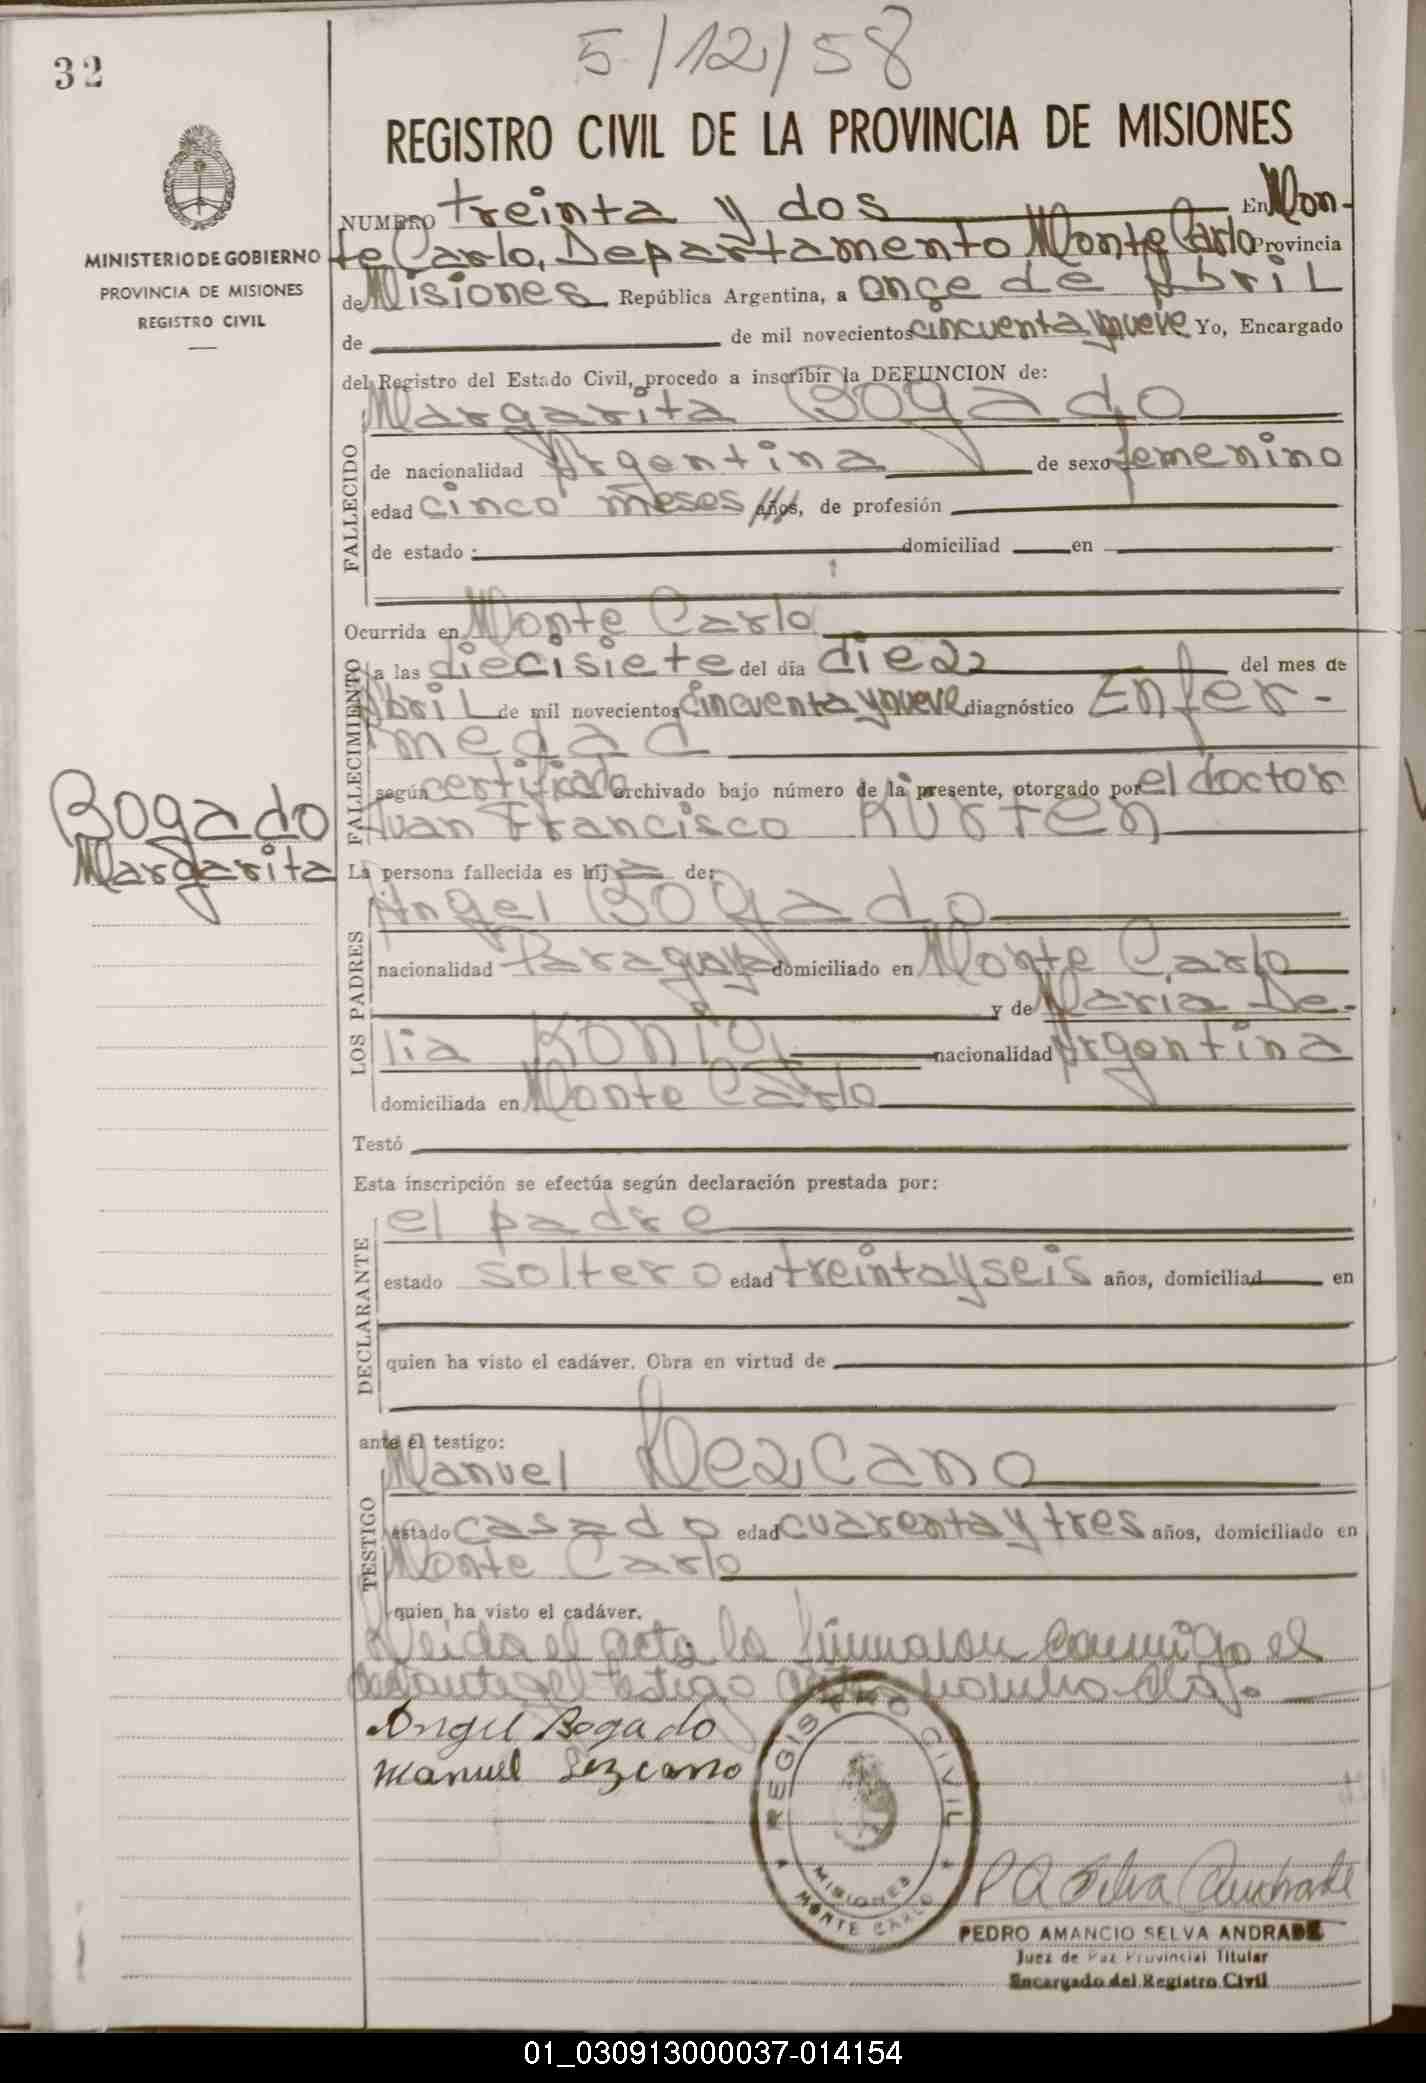 5/12/58
32
REGISTRO CIVIL DE LA PROVINCIA DE MISIONES
MINISTERIO DE GOBIERNO
PROVINCIA DE MISIONES
REGISTRO CIVIL
NUMERO treinta y dos En Mon-
te Carlo, Departamento Monte Carlo Provincia
de Misiones República Argentina, a onçe de Abril
de de mil novecientos cincuenta y nueve Yo, Encargado
del Registro del Estado Civil, procedo a inscribir la DEFUNCION de:
Margarita Bogado
FALLECIDO
de nacionalidad Argentina de sexo femenino
edad cinco meses años, de profesión
de estado: domiciliad en
Ocurrida en Monte Carlo
FALLECIMIENTO
a las diecisiete del día diez del mes de
Abril de mil novecientos cincuenta y nueve diagnóstico Enfer-
medad
según certificado archivado bajo número de la presente, otorgado por el doctor
Juan Francisco Kürten
Bogado
Margarita
La persona fallecida es hij a de:
Angel Bogado
LOS PADRES
nacionalidad Paraguaya domiciliado en Monte Carlo
y de Maria De-
lia König nacionalidad Argentina
domiciliada en Monte Carlo
Testó
Esta inscripción se efectúa según declaración prestada por:
DECLARANTE
el padre
estado soltero edad treinta y seis años, domiciliad en
quien ha visto el cadáver. Obra en virtud de
ante el testigo:
TESTIGO
Manuel Lezcano
estado casado edad cuarenta y tres años, domiciliado en
Monte Carlo
quien ha visto el cadáver.
Leida el acta la firmaron conmigo el
el testigo
Angel Bogado
Manuel Lezcano
REGISTRO CIVIL
MISIONES
MONTE CARLO
P A Selva Andrade
PEDRO AMANCIO SELVA ANDRADE
Juez de Paz Provincial Titular
Encargado del Registro Civil
01_030913000037-014154